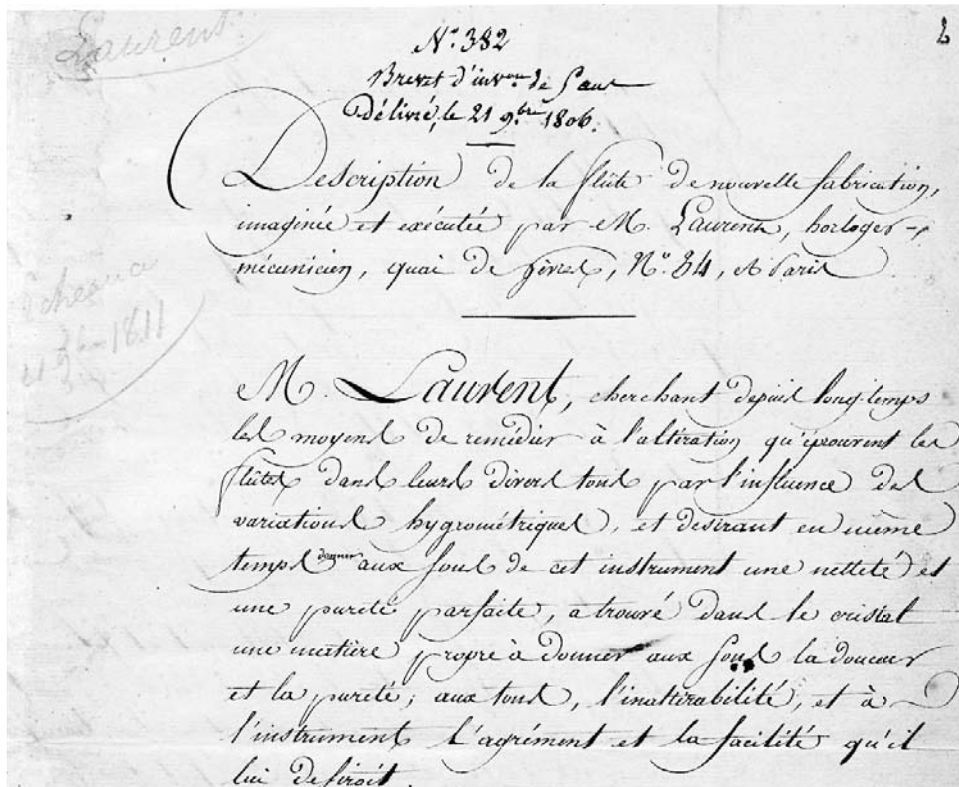 Laurent
2
N.° 382
Brevet d'inv.on de 5 ans
Délivré, le 21 9.bre 1806.
Description de la flûte de nouvelle fabrication,
imaginée et exécutée par M. Laurent, horloger-
mécanicien, quai de Gèvres, N.° 34, à Paris
échéance
21 9bre 1811
M. Laurent, cherchant depuis long-temps
les moyens de remédier à l'altération qu'éprouvent les
flûtes dans leurs divers tons par l'influence des
variations hygrométriques, et desirant en même
temps donner aux sons de cet instrument une netteté et
une pureté parfaite, a trouvé dans le cristal
une matière propre à donner aux sons la douceur
et la pureté; aux tons, l'inaltérabilité, et à
l'instrument l'agrément et la facilité qu'il
lui desiroit.